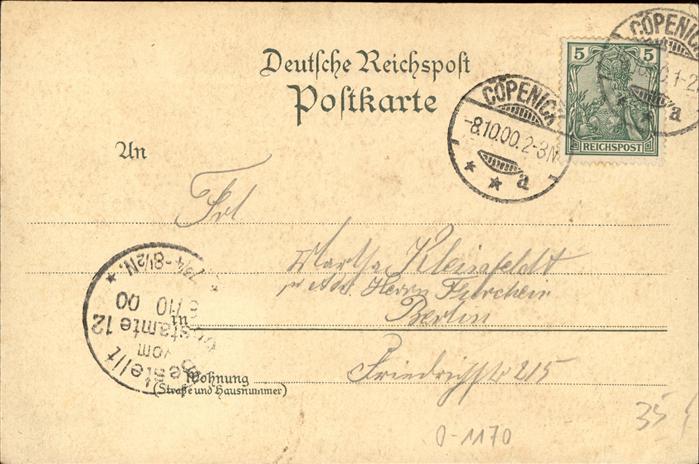 Deutsche Reichspost
Postkarte
CÖPENICK
-8.10.00.2-3N.
a
CÖPENICK
a
5 5
REICHSPOST
An
Frl
Martha Kleinfeldt
Herrn
Berlin
in
Bestellt
vom
Postamte 12
8/10
00
7¾-8½N.
Wohnung
(Straße und Hausnummer)
Friedrichstr 215
35
0-1170